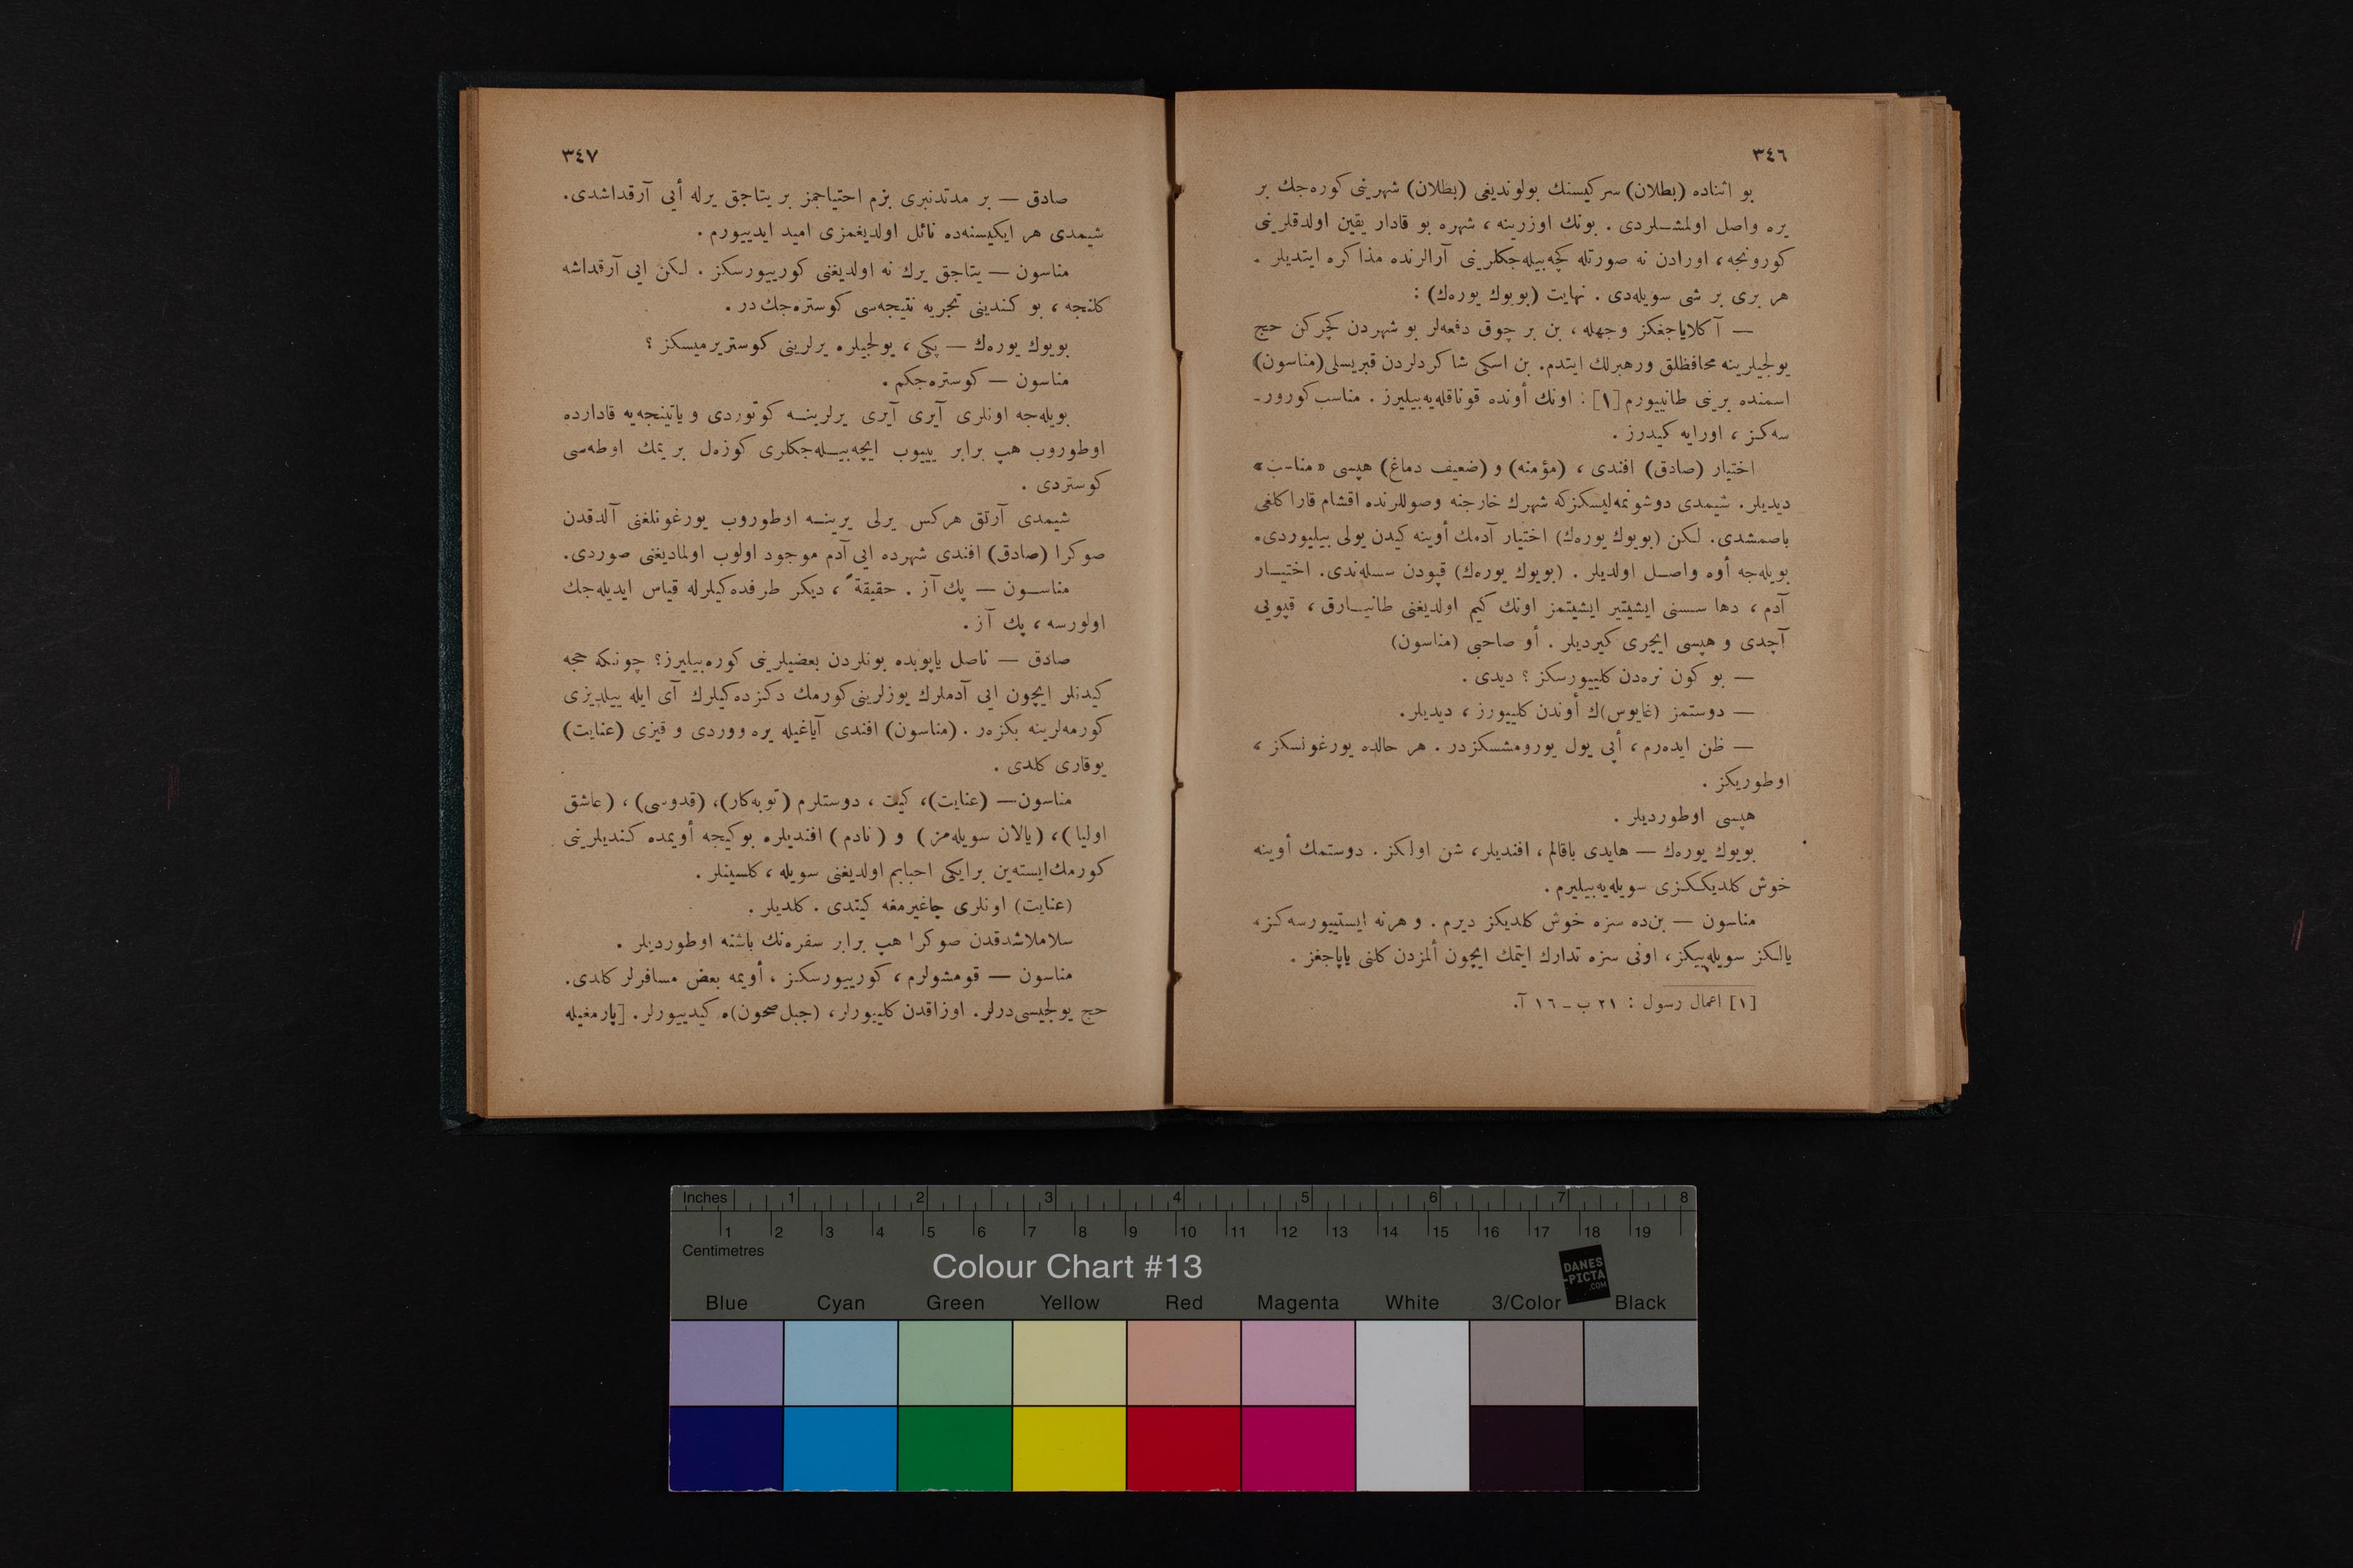 ٣٤٦
بو اثناده (بطلان) سركيسنك بولونديغى (بطلان) شهرينى كوره‌جك بر
يره واصل اولمشلردى . بونك اوزرينه ، شهره بو قادار يقين اولدقلرينى
كورونجه ، اورادن نه صورتله كچه‌بيله‌جكلرينى آرالرنده مذاكره ايتديلر .
هر برى بر شى سويله‌دى . نهايت (بويوك يوره‌ك) :
— آكلاياجغكز وجهله ، بن بر چوق دفعه‌لر بو شهردن كچركن حج
يولجيلرينه محافظلق ورهبرلك ايتدم. بن اسكى شاكردلردن قبريسلى (مناسون)
اسمنده برينى طانييورم [١] : اونك أونده قوناقله‌يه‌بيليرز . مناسب كورور-
سه‌كز ، اورايه كيدرز .
اختيار (صادق) افندى ، (مؤمنه) و (ضعيف دماغ) هپسى «مناسب»
ديديلر. شيمدى دوشونمه‌ليسكزكه شهرك خارجنه وصوللرنده اقشام قاراكلغى
باصمشدى. لكن (بويوك يوره‌ك) اختيار آدمك أوينه كيدن يولى بيلييوردى.
بويله‌جه أوه واصل اولديلر . (بويوك يوره‌ك) قپودن سسله‌ندى. اختيار
آدم ، دها سسنى ايشيتير ايشيتمز اونك كيم اولديغنى طانيارق ، قپويى
آچدى و هپسى ايچرى كيرديلر . أو صاحبى (مناسون)
— بو كون نره‌دن كلييورسكز ؟ ديدى .
— دوستمز (غايوس)ك أوندن كلييورز ، ديديلر.
— ظن ايده‌رم ، أيى يول يورومشسكزدر . هر حالده يورغونسكز ،
اوطوريكز .
هپسى اوطورديلر .
بويوك يوره‌ك — هايدى باقالم ، افنديلر ، شن اولكز . دوستمك أوينه
خوش كلديككزى سويله‌يه‌بيليرم .
مناسون — بن‌ده سزه خوش كلديكز ديرم . و هرنه ايستييورسه‌كز ،
يالكز سويله‌ييكز ، اونى سزه تدارك ايتمك ايچون ألمزدن كلنى ياپاجغز .
[١] اعمال رسول : ٢١ ب ـ ١٦ آ.
٣٤٧
صادق — بر مدتدنبرى بزم احتياجمز بر يتاجق يرله أيى آرقداشدى.
شيمدى هر ايكيسنه‌ده نائل اولديغمزى اميد ايدييورم .
مناسون — يتاجق يرك نه اولديغنى كورييورسكز . لكن ايى آرقداشه
كلنجه ، بو كندينى تجربه نتيجه‌سى كوستره‌جك در .
بويوك يوره‌ك — پكى ، يولجيلره يرلرينى كوستريرميسكز ؟
مناسون — كوستره‌جكم .
بويله‌جه اونلرى آيرى آيرى يرلرينه كوتوردى و ياتينجه‌يه قادارده
اوطوروب هپ برابر ييوب ايچه‌بيله‌جكلرى كوزه‌ل بر يمك اوطه‌سى
كوستردى .
شيمدى آرتق هركس يرلى يرينه اوطوروب يورغونلغنى آلدقدن
صوكرا (صادق) افندى شهرده ايى آدم موجود اولوب اولماديغنى صوردى.
مناسون — پك آز . حقيقةً ، ديكر طرفده‌كيلرله قياس ايديله‌جك
اولورسه ، پك آز .
صادق — ناصل ياپوبده بونلردن بعضيلرينى كوره‌بيليرز؟ چونكه حجه
كيدنلر ايچون ايى آدملرك يوزلرينى كورمك دكزده‌كيلرك آى ايله ييلديزى
كورمه‌لرينه بكزه‌ر . (مناسون) افندى آياغيله يره ووردى و قيزى (عنايت)
يوقارى كلدى .
مناسون — (عنايت)، كيت ، دوستلرم (توبه‌كار)، (قدوسى) ، (عاشق
اوليا)، (يالان سويله‌مز) و (نادم) افنديلره بوكيجه أويمده كنديلرينى
كورمك‌ايسته‌ين برايكى احبابم اولديغنى سويله ، كلسينلر .
(عنايت) اونلرى چاغيرمغه كيتدى . كلديلر .
سلاملاشدقدن صوكرا هپ برابر سفره‌نك باشنه اوطورديلر .
مناسون — قومشولرم ، كورييورسكز ، أويمه بعض مسافرلر كلدى.
حج يولجيسى‌درلر. اوزاقدن كلييورلر، (جبل صحون)ه كيدييورلر. [پارمغيله
Inches 1 2 3 4 5 6 7 8
1 2 3 4 5 6 7 8 9 10 11 12 13 14 15 16 17 18 19
Centimetres
Colour Chart #13
DANES
-PICTA
.COM
Blue Cyan Green Yellow Red Magenta White 3/Color Black